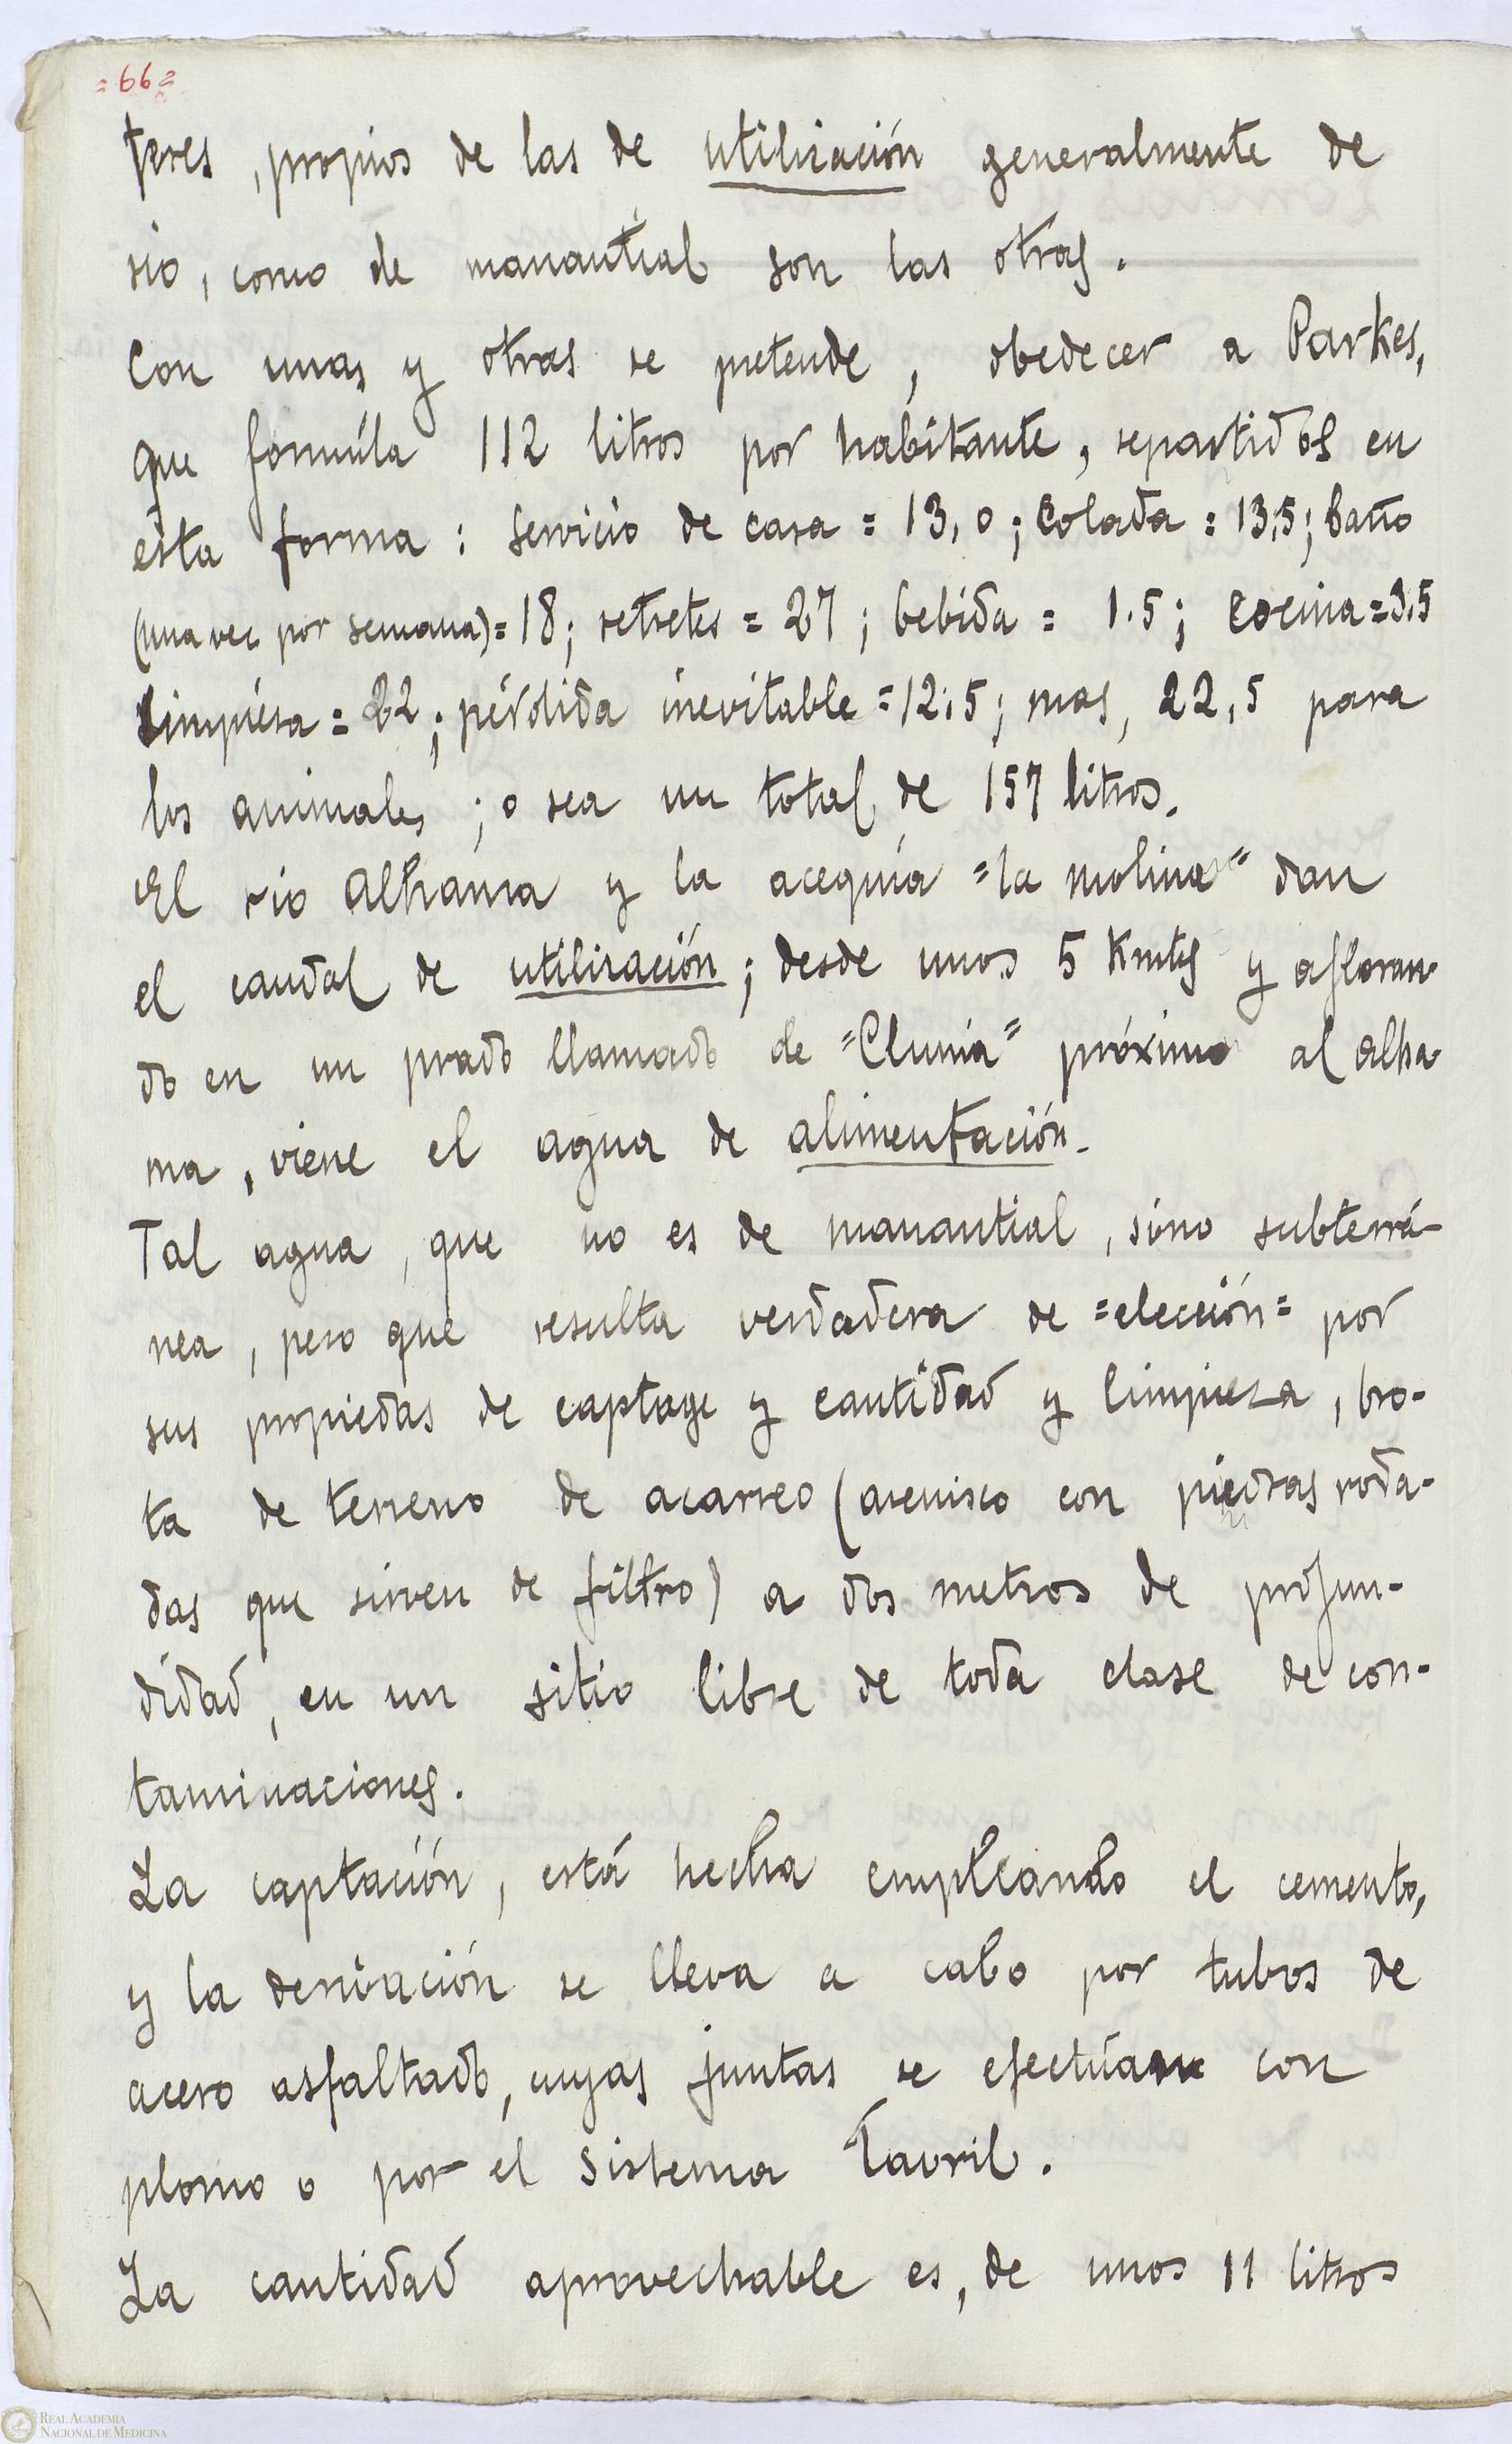 =66=
teres, propios de las de utilización generalmente de
rio, como de manantial son las otras.
Con unas y otras se pretende, obedecer a Parkes,
que formúla 112 litros por habitante, repartidos en
esta forma: servicio de casa = 13,0; Colada = 13,5; baño
(una vez por semana)= 18; retretes = 27; bebida = 1.5; cocina = 3.5
Limpiéza = 22; pérdida inevitable = 12,5; mas, 22,5 para
los animales; o sea un total de 157 litros.
El rio Alhama y la acequia "la molina" dan
el caudal de utilización; desde unos 5 Kmts y afloran-
do en un prado llamado de "Clunia" próximo al alha-
ma, viene el agua de alimentación.
Tal agua, que no es de manantial, sino subterrá-
nea, pero que resulta verdadera de =elección= por
sus propiedas de captage y cantidad y limpieza, bro-
ta de terreno de acarreo (arenisco con piedras roda-
das que sirven de filtro) a dos metros de profun-
didad, en un sitio libre de toda clase de con-
taminaciones.
La captación, está hecha empleando el cemento,
y la derivación se lleva a cabo por tubos de
acero asfaltado, cuyas juntas se efectúan con
plomo o por el sistema Tavril.
La cantidad aprovechable es, de unos 11 litros
REAL ACADEMIA
NACIONAL DE MEDICINA